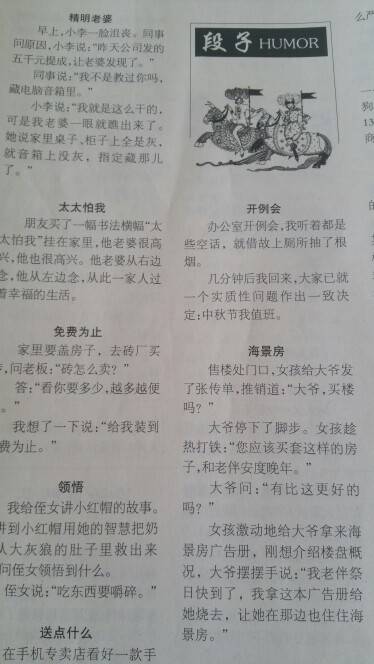 精明老婆
早上,小李一脸沮丧。同事
问原因,小李说:“昨天公司发的
五千元提成,让老婆发现了。”
同事说:“我不是教过你吗,
藏电脑音箱里。”
小李说:“我就是这么干的,
可是我老婆一眼就瞧出来了。
她说家里桌子、柜子上全是灰,
就音箱上没灰,指定藏那儿
了。”
太太怕我
朋友买了一幅书法横幅“太
太怕我”挂在家里,他老婆很高
兴,他也很高兴。他老婆从右边
念,他从左边念,从此一家人过
着幸福的生活。
免费为止
家里要盖房子,去砖厂买
,问老板:“砖怎么卖?”
答:“看你要多少,越多越便
。”
我想了一下说:“给我装到
费为止。”
领悟
我给侄女讲小红帽的故事。
讲到小红帽用她的智慧把奶
从大灰狼的肚子里救出来
问侄女领悟到什么。
侄女说:“吃东西要嚼碎。”
送点什么
在手机专卖店看好一款手
段子 HUMOR
开例会
办公室开例会,我听着都是
些空话,就借故上厕所抽了根
烟。
几分钟后我回来,大家已就
一个实质性问题作出一致决
定:中秋节我值班。
海景房
售楼处门口,女孩给大爷发
了张传单,推销道:“大爷,买楼
吗?”
大爷停下了脚步。女孩趁
热打铁:“您应该买套这样的房
子,和老伴安度晚年。”
大爷问:“有比这更好的
吗?”
女孩激动地给大爷拿来海
景房广告册,刚想介绍楼盘概
况,大爷摆摆手说:“我老伴祭
日快到了,我拿这本广告册给
她烧去,让她在那边也住住海
景房。”
么产
狗
13
商